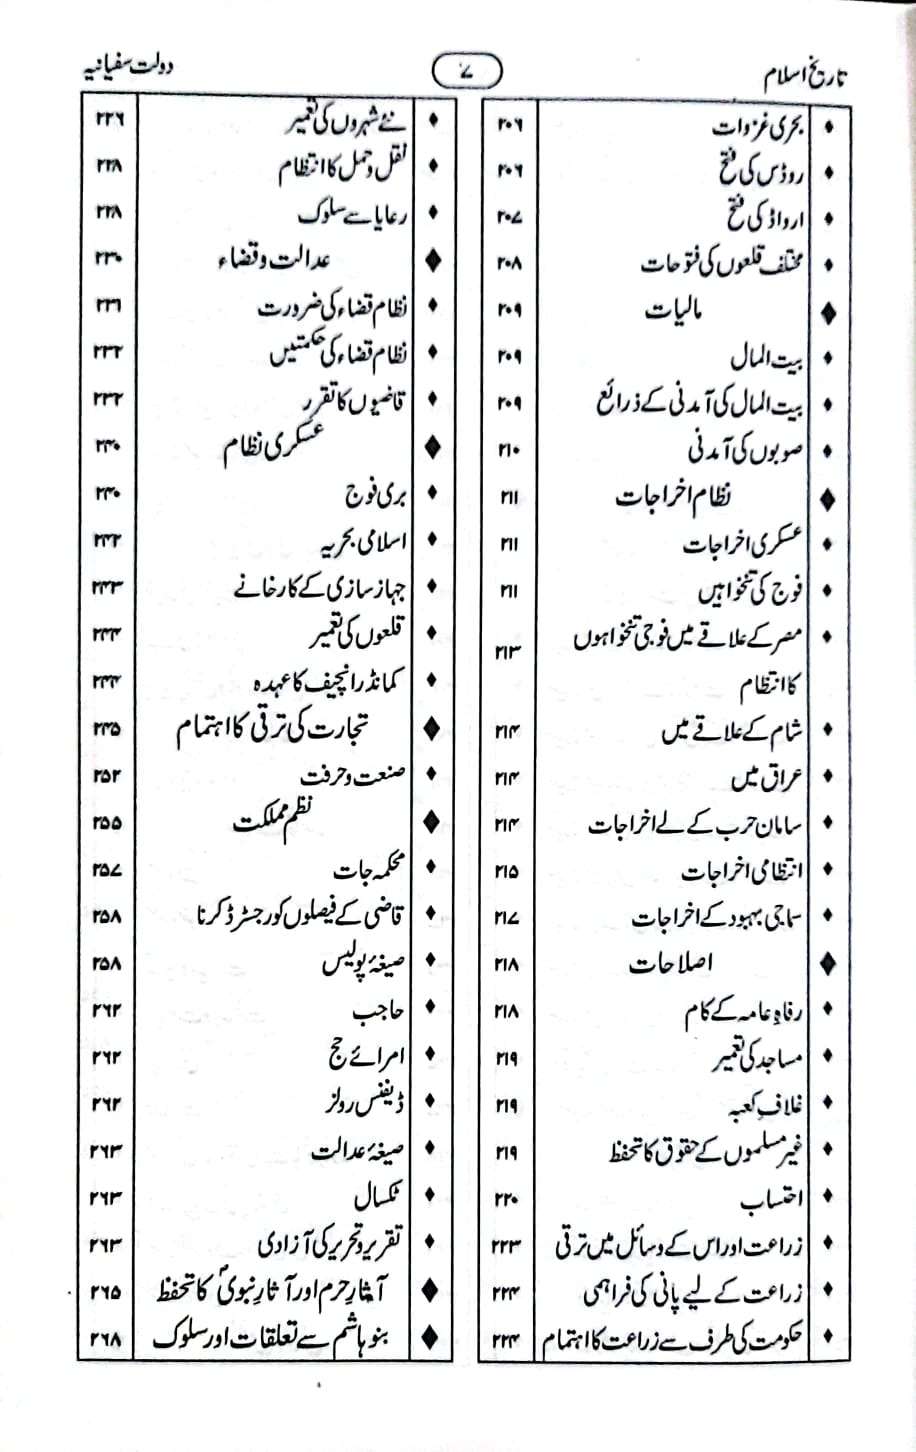 تاریخ اسلام
۷
دولت سفیانیہ
♦ بحری غزوات ۲۰۶
♦ روڈس کی فتح ۲۰۶
♦ ارواڈ کی فتح ۲۰۷
♦ مختلف قلعوں کی فتوحات ۲۰۸
◆ مالیات ۲۰۹
♦ بیت المال ۲۰۹
♦ بیت المال کی آمدنی کے ذرائع ۲۰۹
♦ صوبوں کی آمدنی ۲۱۰
◆ نظام اخراجات ۲۱۱
♦ عسکری اخراجات ۲۱۱
♦ فوج کی تنخواہیں ۲۱۱
♦ مصر کے علاقے میں فوجی تنخواہوں ۲۱۳
کا انتظام
♦ شام کے علاقے میں ۲۱۴
♦ عراق میں ۲۱۴
♦ سامان حرب کے لے اخراجات ۲۱۴
♦ انتظامی اخراجات ۲۱۵
♦ سماجی بہبود کے اخراجات ۲۱۷
◆ اصلاحات ۲۱۸
♦ رفاہِ عامہ کے کام ۲۱۸
♦ مساجد کی تعمیر ۲۱۹
♦ غلافِ کعبہ ۲۱۹
♦ غیر مسلموں کے حقوق کا تحفظ ۲۱۹
♦ احتساب ۲۲۰
♦ زراعت اور اس کے وسائل میں ترقی ۲۲۳
♦ زراعت کے لیے پانی کی فراہمی ۲۲۴
♦ حکومت کی طرف سے زراعت کا اہتمام ۲۲۴
♦ نئے شہروں کی تعمیر ۲۲۶
♦ نقل وحمل کا انتظام ۲۲۸
♦ رعایا سے سلوک ۲۲۸
◆ عدالت وقضاء ۲۳۰
♦ نظام قضاء کی ضرورت ۲۳۱
♦ نظام قضاء کی حکمتیں ۲۳۲
♦ قاضیوں کا تقرر ۲۳۲
◆ عسکری نظام ۲۴۰
♦ بری فوج ۲۴۰
♦ اسلامی بحریہ ۲۴۲
♦ جہاز سازی کے کارخانے ۲۴۳
♦ قلعوں کی تعمیر ۲۴۴
♦ کمانڈر انچیف کا عہدہ ۲۴۴
◆ تجارت کی ترقی کا اہتمام ۲۴۵
♦ صنعت وحرفت ۲۵۲
◆ نظم مملکت ۲۵۵
♦ محکمہ جات ۲۵۷
♦ قاضی کے فیصلوں کو رجسٹرڈ کرنا ۲۵۸
♦ صیغۂ پولیس ۲۵۸
♦ حاجب ۲۶۲
♦ امرائے حج ۲۶۲
♦ ڈیفنس رولز ۲۶۲
♦ صیغۂ عدالت ۲۶۳
♦ ٹکسال ۲۶۳
♦ تقریر وتحریر کی آزادی ۲۶۳
◆ آثارِ حرم اور آثارِ نبویؐ کا تحفظ ۲۶۵
◆ بنو ہاشم سے تعلقات اور سلوک ۲۶۸